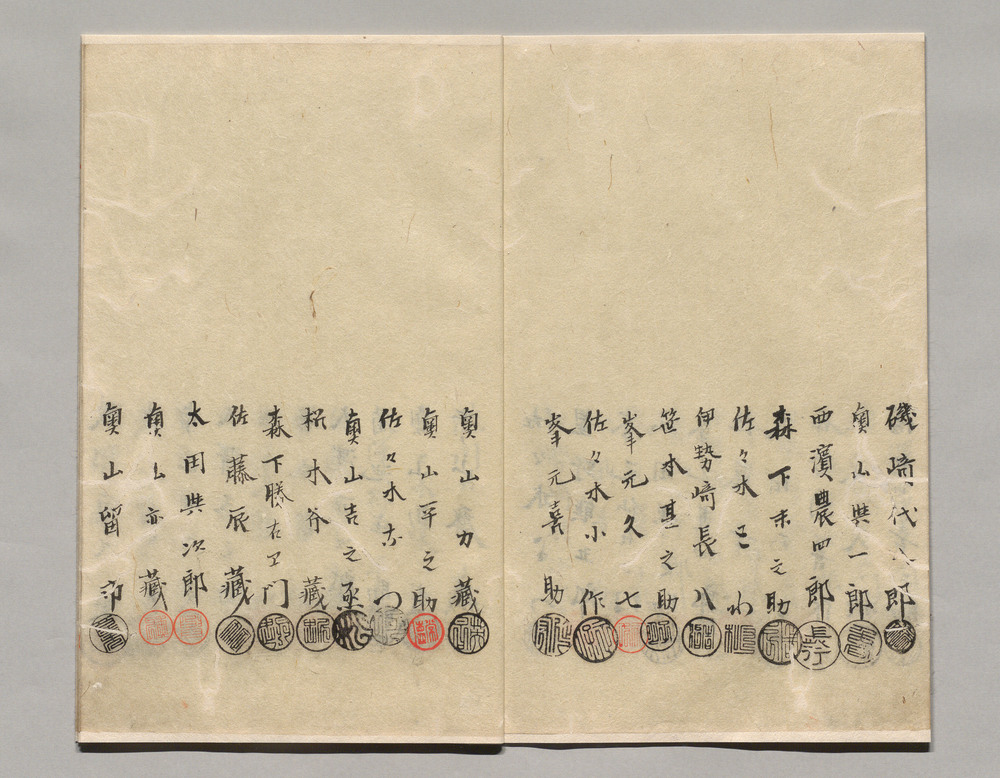 磯崎代六郎
奥山與一郎
西濱農四郎
森下末之助
佐々木
伊勢崎長八
笹木甚之助
峯元久七
佐々木小作
峯元喜助
奥山力藏
奥山平之助
佐々木
奥山吉之丞
木谷藏
森下勝右衛門
佐藤辰藏
太田與次郎
奥山亦藏
奥山留